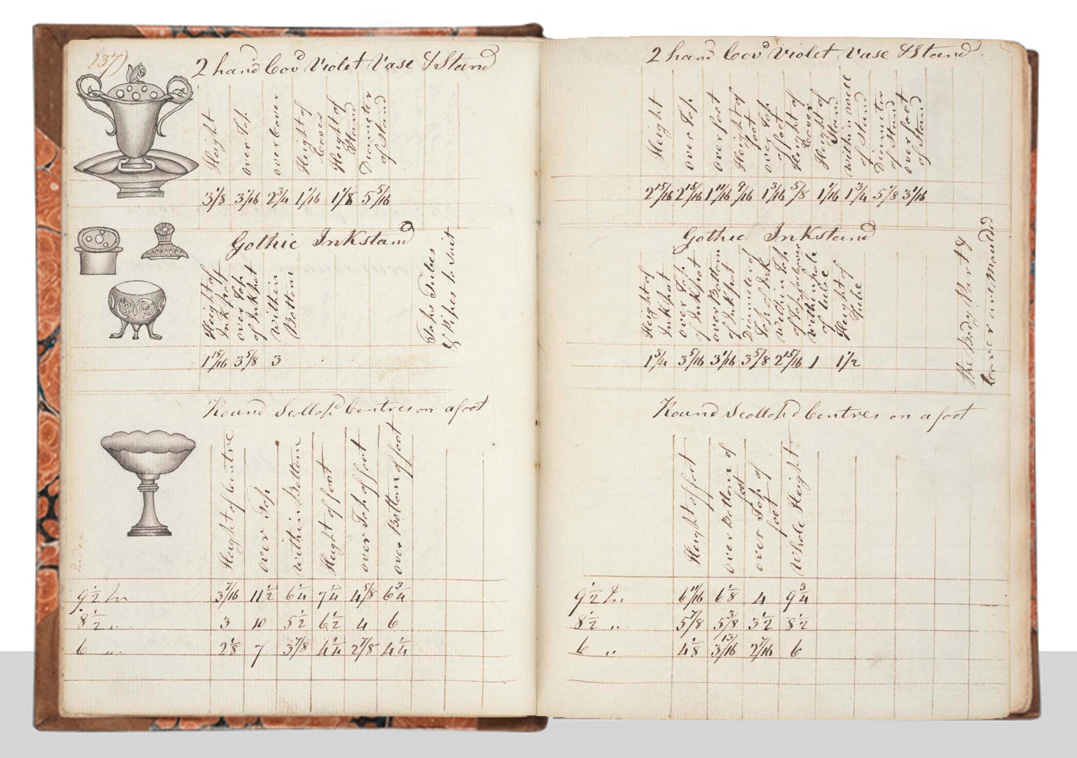 137
2 hand Cov.d Violet Vase & Stand
Height
over Top
over Cover
Height of Cover
Height of Stand
Diameter of Stand
3 1/8 3 3/16 2 3/4 1 1/16 1 1/8 5 5/16
Gothic Inkstand
Height of Inkpot
over Top of Inkpot
within Bottom
Tubes & Pipes to suit
1 15/16 3 5/8 3
Round Scollop'd Centres on a foot
Height of Centre
over Top
within Bottom
Height of foot
over Top of foot
over Bottom of foot
9 1/2 In. 3 7/16 11 1/2 6 1/4 7 1/4 4 5/8 6 3/4
8 1/2 " 3 10 5 1/2 6 1/2 4 6
6 " 2 1/8 7 3 7/8 4 1/4 2 7/8 4 1/4
2 hand Cov.d Violet Vase & Stand
Height
over Top
over foot
Height of foot
over Top of foot
Height of Cover
Height of Stand
within well of Stand
Diameter of Stand
over foot of Stand
2 15/16 2 15/16 1 14/16 9/16 1 3/16 5/8 1 1/16 1 3/4 5 1/8 3 1/16
Gothic Inkstand
Height of Inkpot
over Top of Inkpot
over Bottom of Inkpot
Diameter of Top of Ink
within Top
within hole of tube
Height of
the Body Part &
Cover are moulded
1 3/4 3 5/16 3 1/16 3 5/8 2 15/16 1 1 1/2
Round Scollop'd Centres on a foot
Height of foot
over Bottom of foot
over Top of foot
Whole Height
9 1/2 In. 6 11/16 6 1/8 4 9 3/4
8 1/2 " 5 7/8 5 3/8 3 1/2 8 1/2
6 " 4 1/8 3 13/16 2 7/16 6